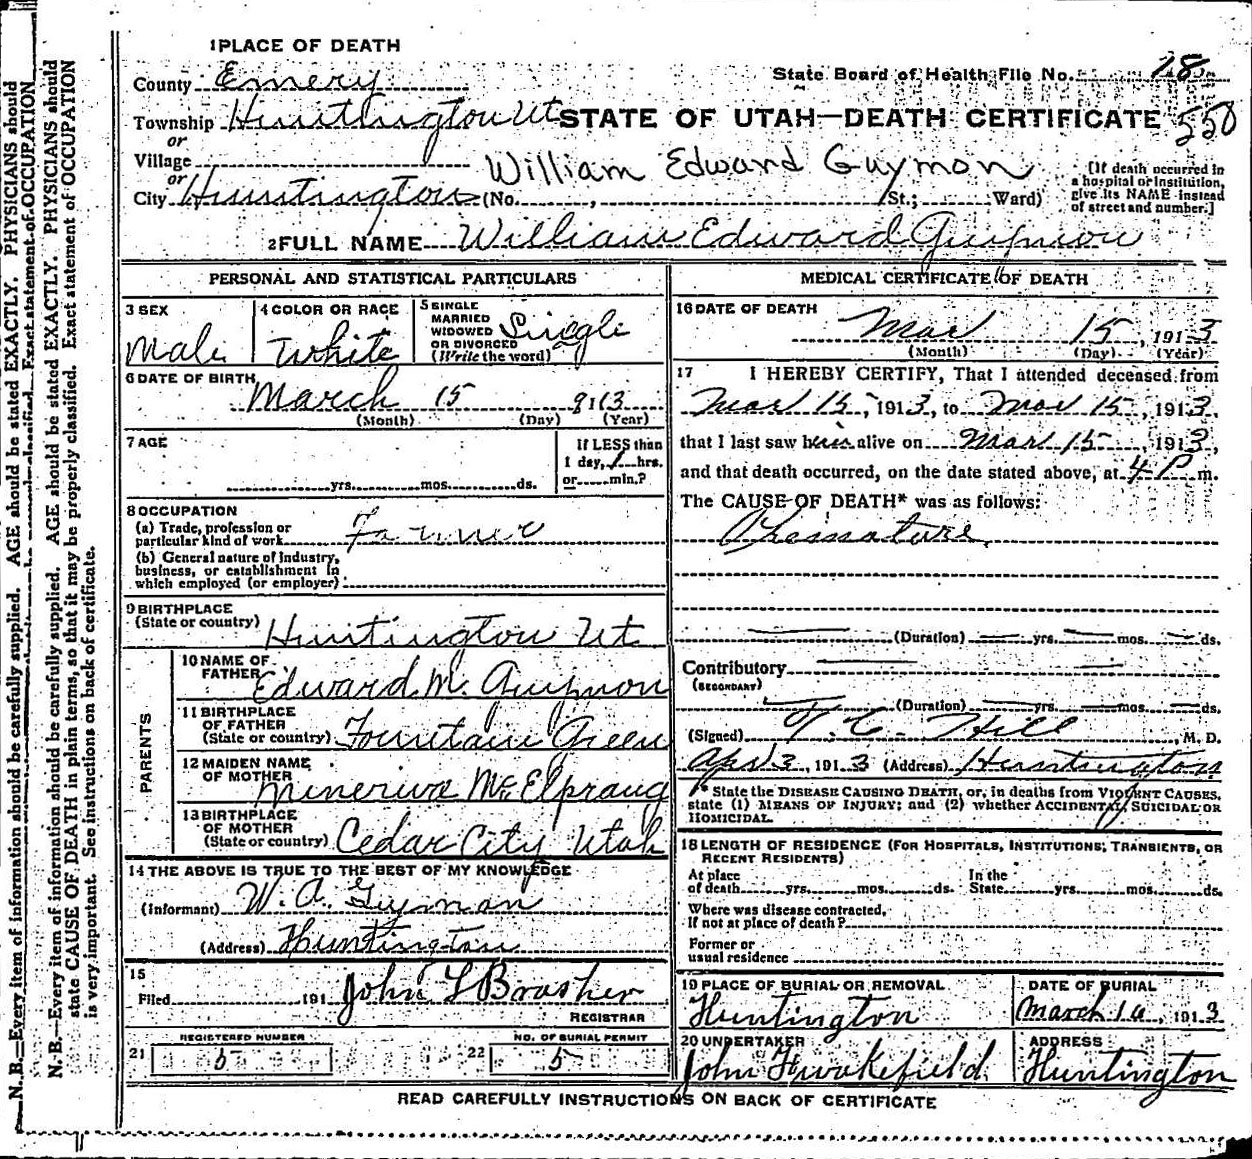 N.B.—Every item of information should be carefully supplied. AGE should be stated EXACTLY. PHYSICIANS should
state CAUSE OF DEATH in plain terms, so that it may be properly classified. Exact statement of OCCUPATION
is very important. See instructions on back of certificate.
N.B.—Every item of information should be carefully supplied. AGE should be stated EXACTLY. PHYSICIANS should
Exact statement of OCCUPATION
1 PLACE OF DEATH
County Emery
State Board of Health File No. 28
Township Huntington Ut
STATE OF UTAH—DEATH CERTIFICATE 550
or
Village
William Edward Guymon
or
City Huntington (No. , St.; Ward)
[If death occurred in
a hospital or institution,
give its NAME instead
of street and number.]
2 FULL NAME William Edward Guymon
PERSONAL AND STATISTICAL PARTICULARS
3 SEX
Male
4 COLOR OR RACE
White
5 SINGLE
MARRIED
WIDOWED
OR DIVORCED
(Write the word)
Single
6 DATE OF BIRTH
March 15 9113
(Month) (Day) (Year)
7 AGE
yrs. mos. ds.
If LESS than
1 day, 1 hrs.
or min.?
8 OCCUPATION
(a) Trade, profession or
particular kind of work Farmer
(b) General nature of industry,
business, or establishment in
which employed (or employer)
9 BIRTHPLACE
(State or country) Huntington Ut
PARENTS
10 NAME OF
FATHER Edward M. Guymon
11 BIRTHPLACE
OF FATHER
(State or country) Fountain Green
12 MAIDEN NAME
OF MOTHER
Minerva McElpraug
13 BIRTHPLACE
OF MOTHER
(State or country) Cedar City Utah
14 THE ABOVE IS TRUE TO THE BEST OF MY KNOWLEDGE
(Informant) W. A. Guymon
(Address) Huntington
15
Filed 191 John L Brasher
REGISTRAR
REGISTERED NUMBER
21 5
NO. OF BURIAL PERMIT
22 5
MEDICAL CERTIFICATE OF DEATH
16 DATE OF DEATH
Mar 15, 1913
(Month) (Day) (Year)
17 I HEREBY CERTIFY, That I attended deceased from
Mar 15, 1913, to Mar 15, 1913,
that I last saw him alive on Mar 15, 1913,
and that death occurred, on the date stated above, at 4 P m.
The CAUSE OF DEATH* was as follows:
Premature
(Duration) yrs. mos. ds.
Contributory
(SECONDARY)
(Duration) yrs. mos. ds.
(Signed) T. C. Hill, M. D.
Apr 3, 1913 (Address) Huntington
* State the DISEASE CAUSING DEATH, or, in deaths from VIOLENT CAUSES,
state (1) MEANS OF INJURY; and (2) whether ACCIDENTAL, SUICIDAL OR
HOMICIDAL.
18 LENGTH OF RESIDENCE (FOR HOSPITALS, INSTITUTIONS, TRANSIENTS, OR
RECENT RESIDENTS)
At place
of death yrs. mos. ds.
In the
State yrs. mos. ds.
Where was disease contracted,
If not at place of death?
Former or
usual residence
19 PLACE OF BURIAL OR REMOVAL
Huntington
DATE OF BURIAL
March 16, 1913
20 UNDERTAKER
John F Wakefield
ADDRESS
Huntington
READ CAREFULLY INSTRUCTIONS ON BACK OF CERTIFICATE